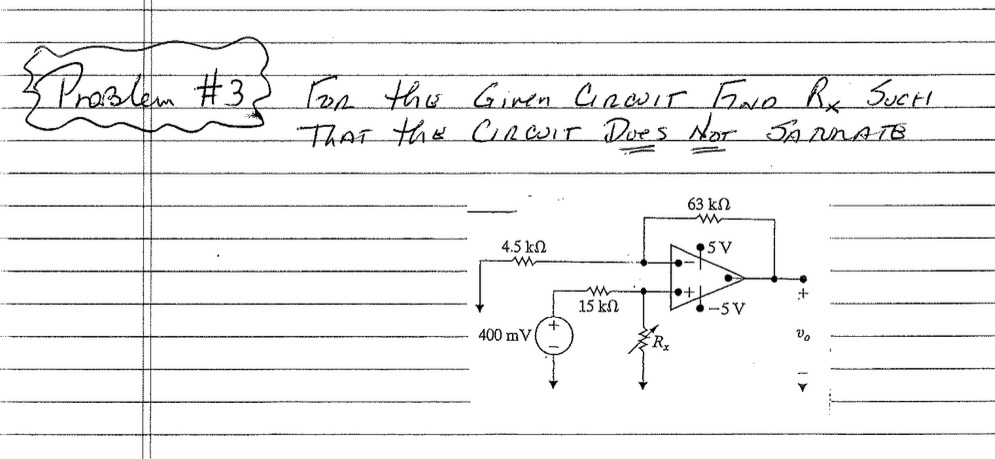 Problem #3
For the Given Circuit Find Rx Such
That the Circuit Does Not Saturate
63 kΩ
4.5 kΩ
5 V
−
+
15 kΩ
−5 V
+
400 mV
+
−
Rx
vo
−